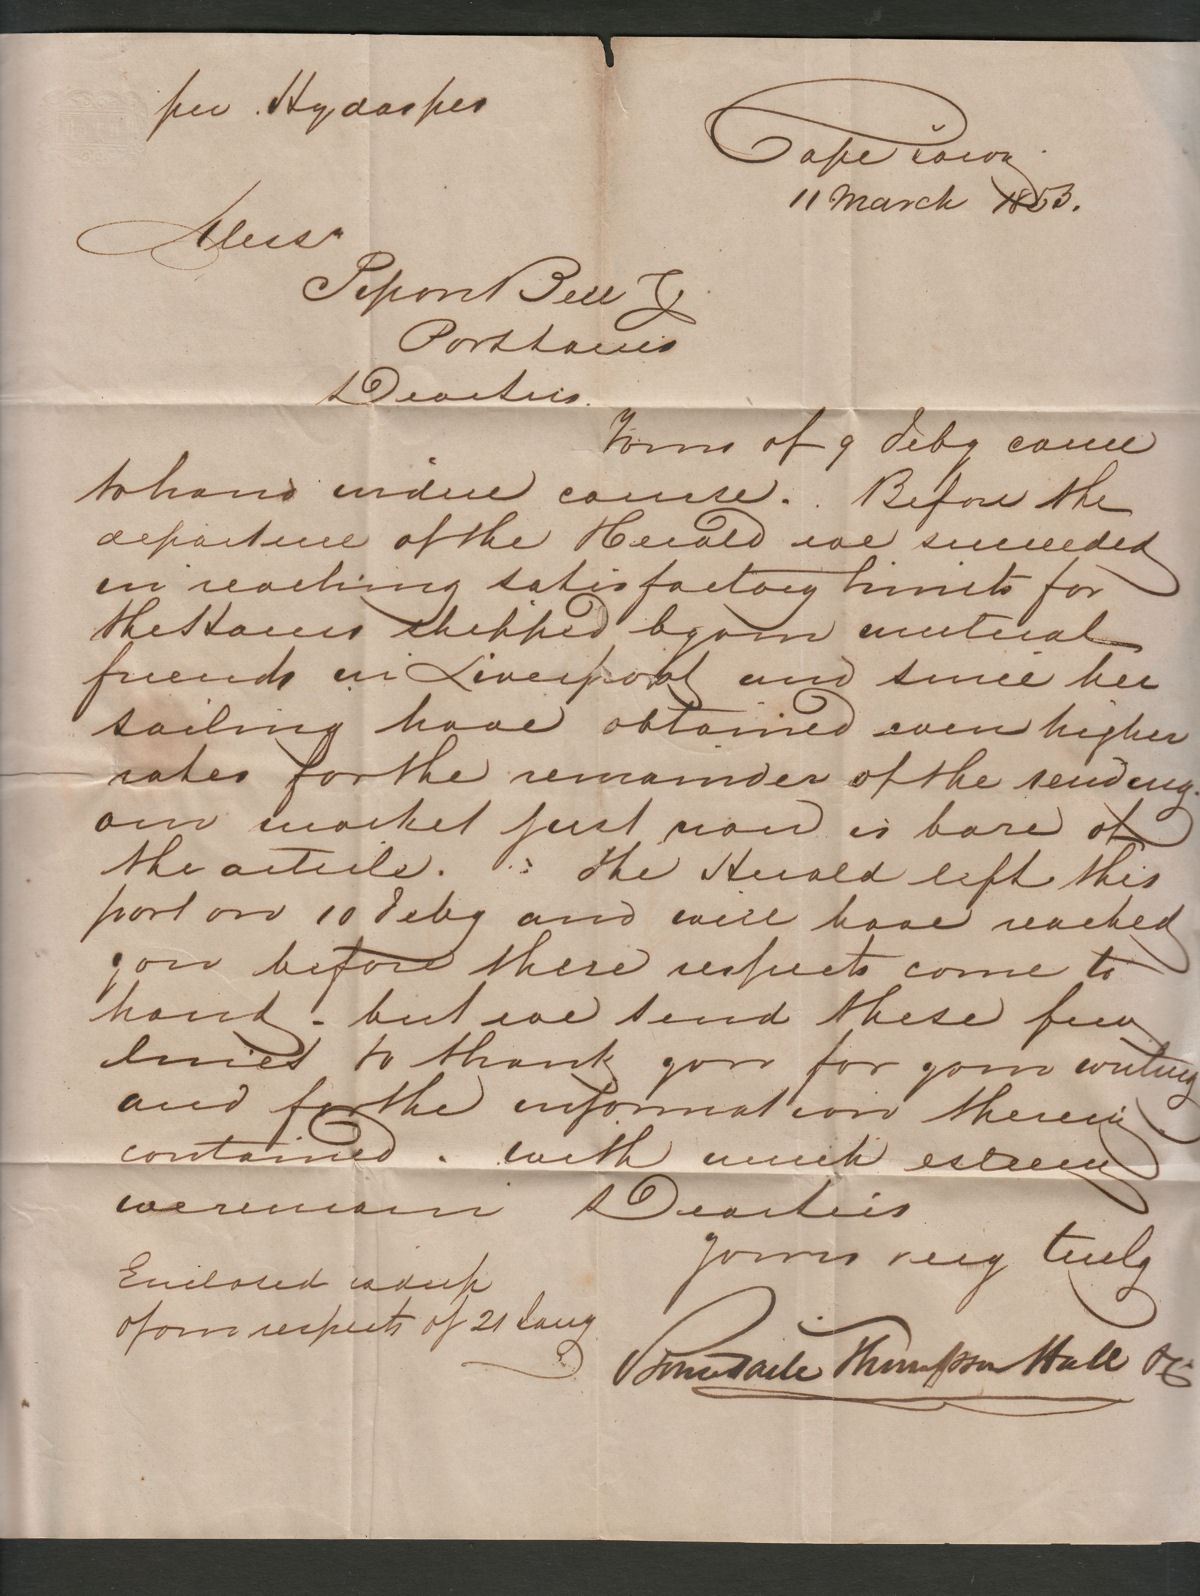 per Hydaspes
Cape Town
11 March 1853.
Mess rs
Pipon Bell & Co
Port Louis
Dear Sirs.
Yours of 9 Feby came
to hand in due course. Before the
departure of the Herald we succeeded
in reaching satisfactory limits for
the Hams shipped by our mutual
friends in Liverpool and since her
sailing have obtained even higher
rates for the remainder of the sending.
our market just now is bare of
the article. The Herald left this
port on 10 Feby and will have reached
you before these respects come to
hand - but we send these few
lines to thank you for your writing
and for the information therein
contained. with much esteem
we remain Dear Sirs
yours very truly
Enclosed is dup
of our respects of 21 Jany
Thompson Hall & Co